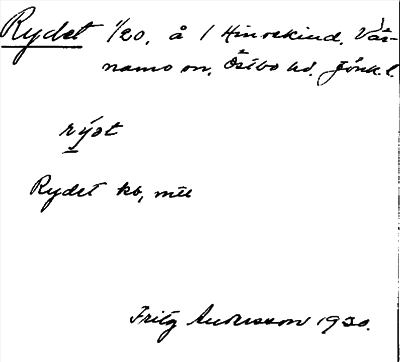 Rydet 1/20, å 1 Hinsekind, Vär-
namo sn. Östbo hd. Jönk. l.
rýət
Rydet kb, mtl
Fritz Andersson 1930.